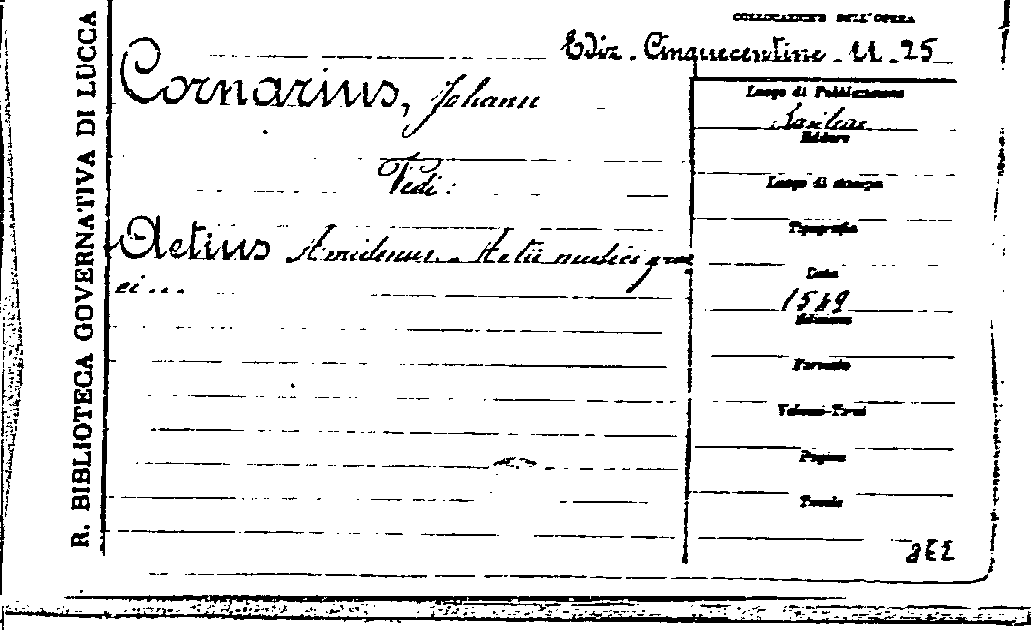 R. BIBLIOTECA GOVERNATIVA DI LUCCA
COLLOCAZIONE DELL'OPERA
Ediz. Cinquecentine. 11. 25
Cornarius, Johann
Vedi:
Aetius Amidenus. Aetii medici grae
ci...
Luogo di Pubblicazione
Basileae
Editore
Luogo di stampa
Tipografia
Data
1549
Edizione
Formato
Volumi-Tomi
Pagine
Tavole